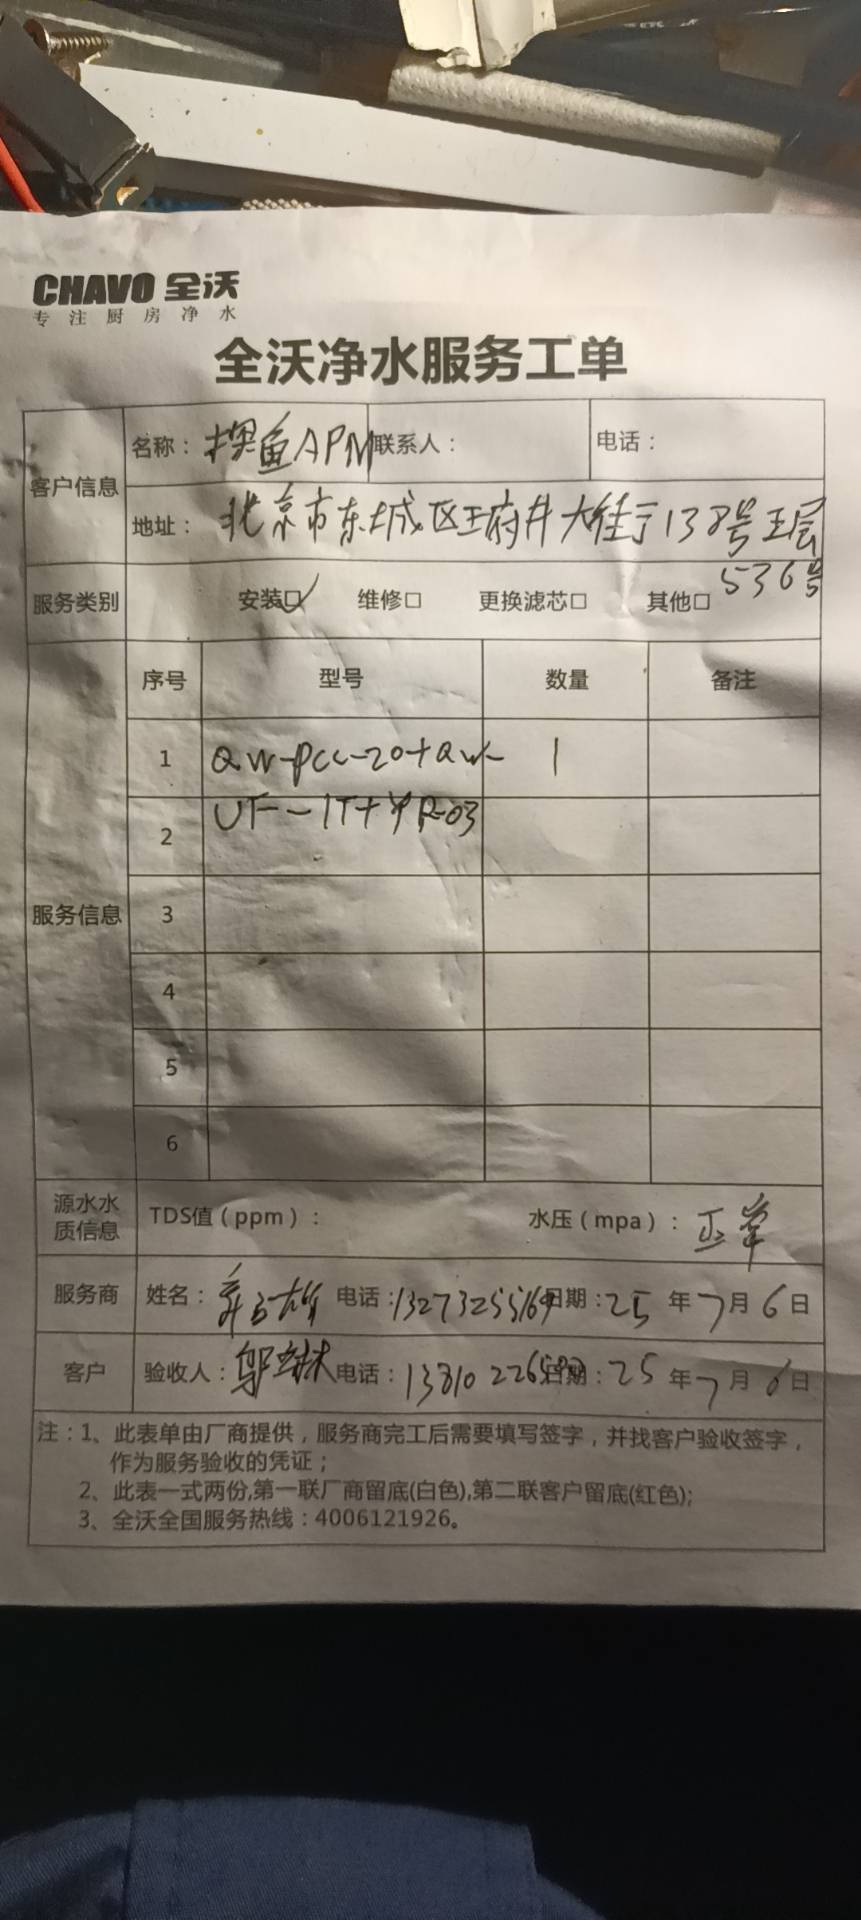 CHAVO 全沃
专注厨房净水
全沃净水服务工单
客户信息
名称：摸鱼APM 联系人： 电话：
地址：北京市东城区王府井大街138号五层
536号
服务类别 安装☑ 维修□ 更换滤芯□ 其他□
服务信息
序号 型号 数量 备注
1 QW-PCC-20+QW- 1
2 UF-1T+YR-03
3
4
5
6
源水水质信息 TDS值（ppm）： 水压（mpa）：正常
服务商 姓名： 电话：13273255169 日期：25年7月6日
客户 验收人： 电话：13810226 日期：25年7月6日
注：1、此表单由厂商提供，服务商完工后需要填写签字，并找客户验收签字，
作为服务验收的凭证；
2、此表一式两份,第一联厂商留底(白色),第二联客户留底(红色);
3、全沃全国服务热线：4006121926。